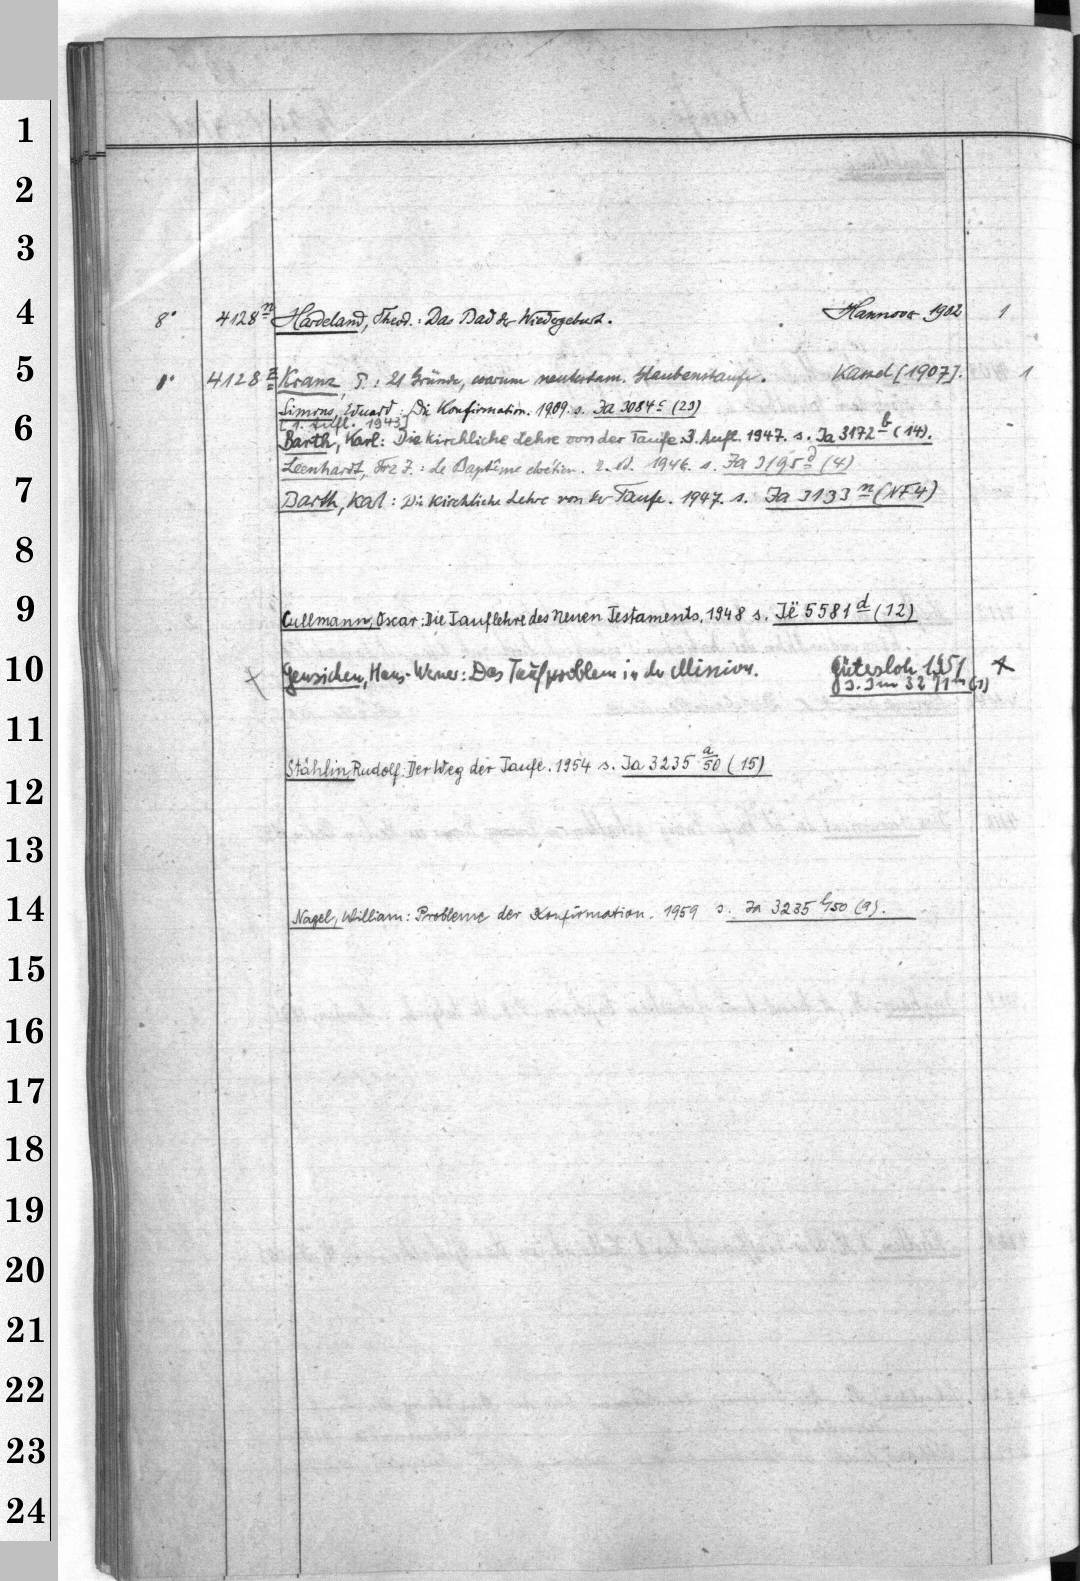 1
2
3
4
8° 4128n Hardeland, Theod.: Das Bad der Wiedergeburt. Hannover 1902 1
5
8° 4128 Kranz, P.: 21 Gründe, warum neutestam. Glaubenstaufe. Kassel [1907]. 1
Simons, Eduard: Die Konfirmation. 1909. s. Ja 3084c (23)
[1. Aufl. 1943]
6
Barth, Karl: Die kirchliche Lehre von der Taufe. 3. Aufl. 1947. s. Ja 3172b (14).
Leenhardt, Frz J.: Le Baptême chrétien. 2. éd. 1946. s. Ja 3195d (4)
7
Barth, Karl: Die kirchliche Lehre von der Taufe. 1947. s. Ja 3133n (NF4)
8
9
Cullmann, Oscar: Die Tauflehre des Neuen Testaments. 1948 s. Jë 5581d (12)
10
Gensichen, Hans-Werner: Das Taufproblem in der Mission. Gütersloh 1951
11
Stählin, Rudolf: Der Weg der Taufe. 1954 s. Ja 3235 a/50 (15)
12
13
14
Nagel, William: Probleme der Konfirmation. 1959 s. Ja 3235 /50 (9).
15
16
17
18
19
20
21
22
23
24